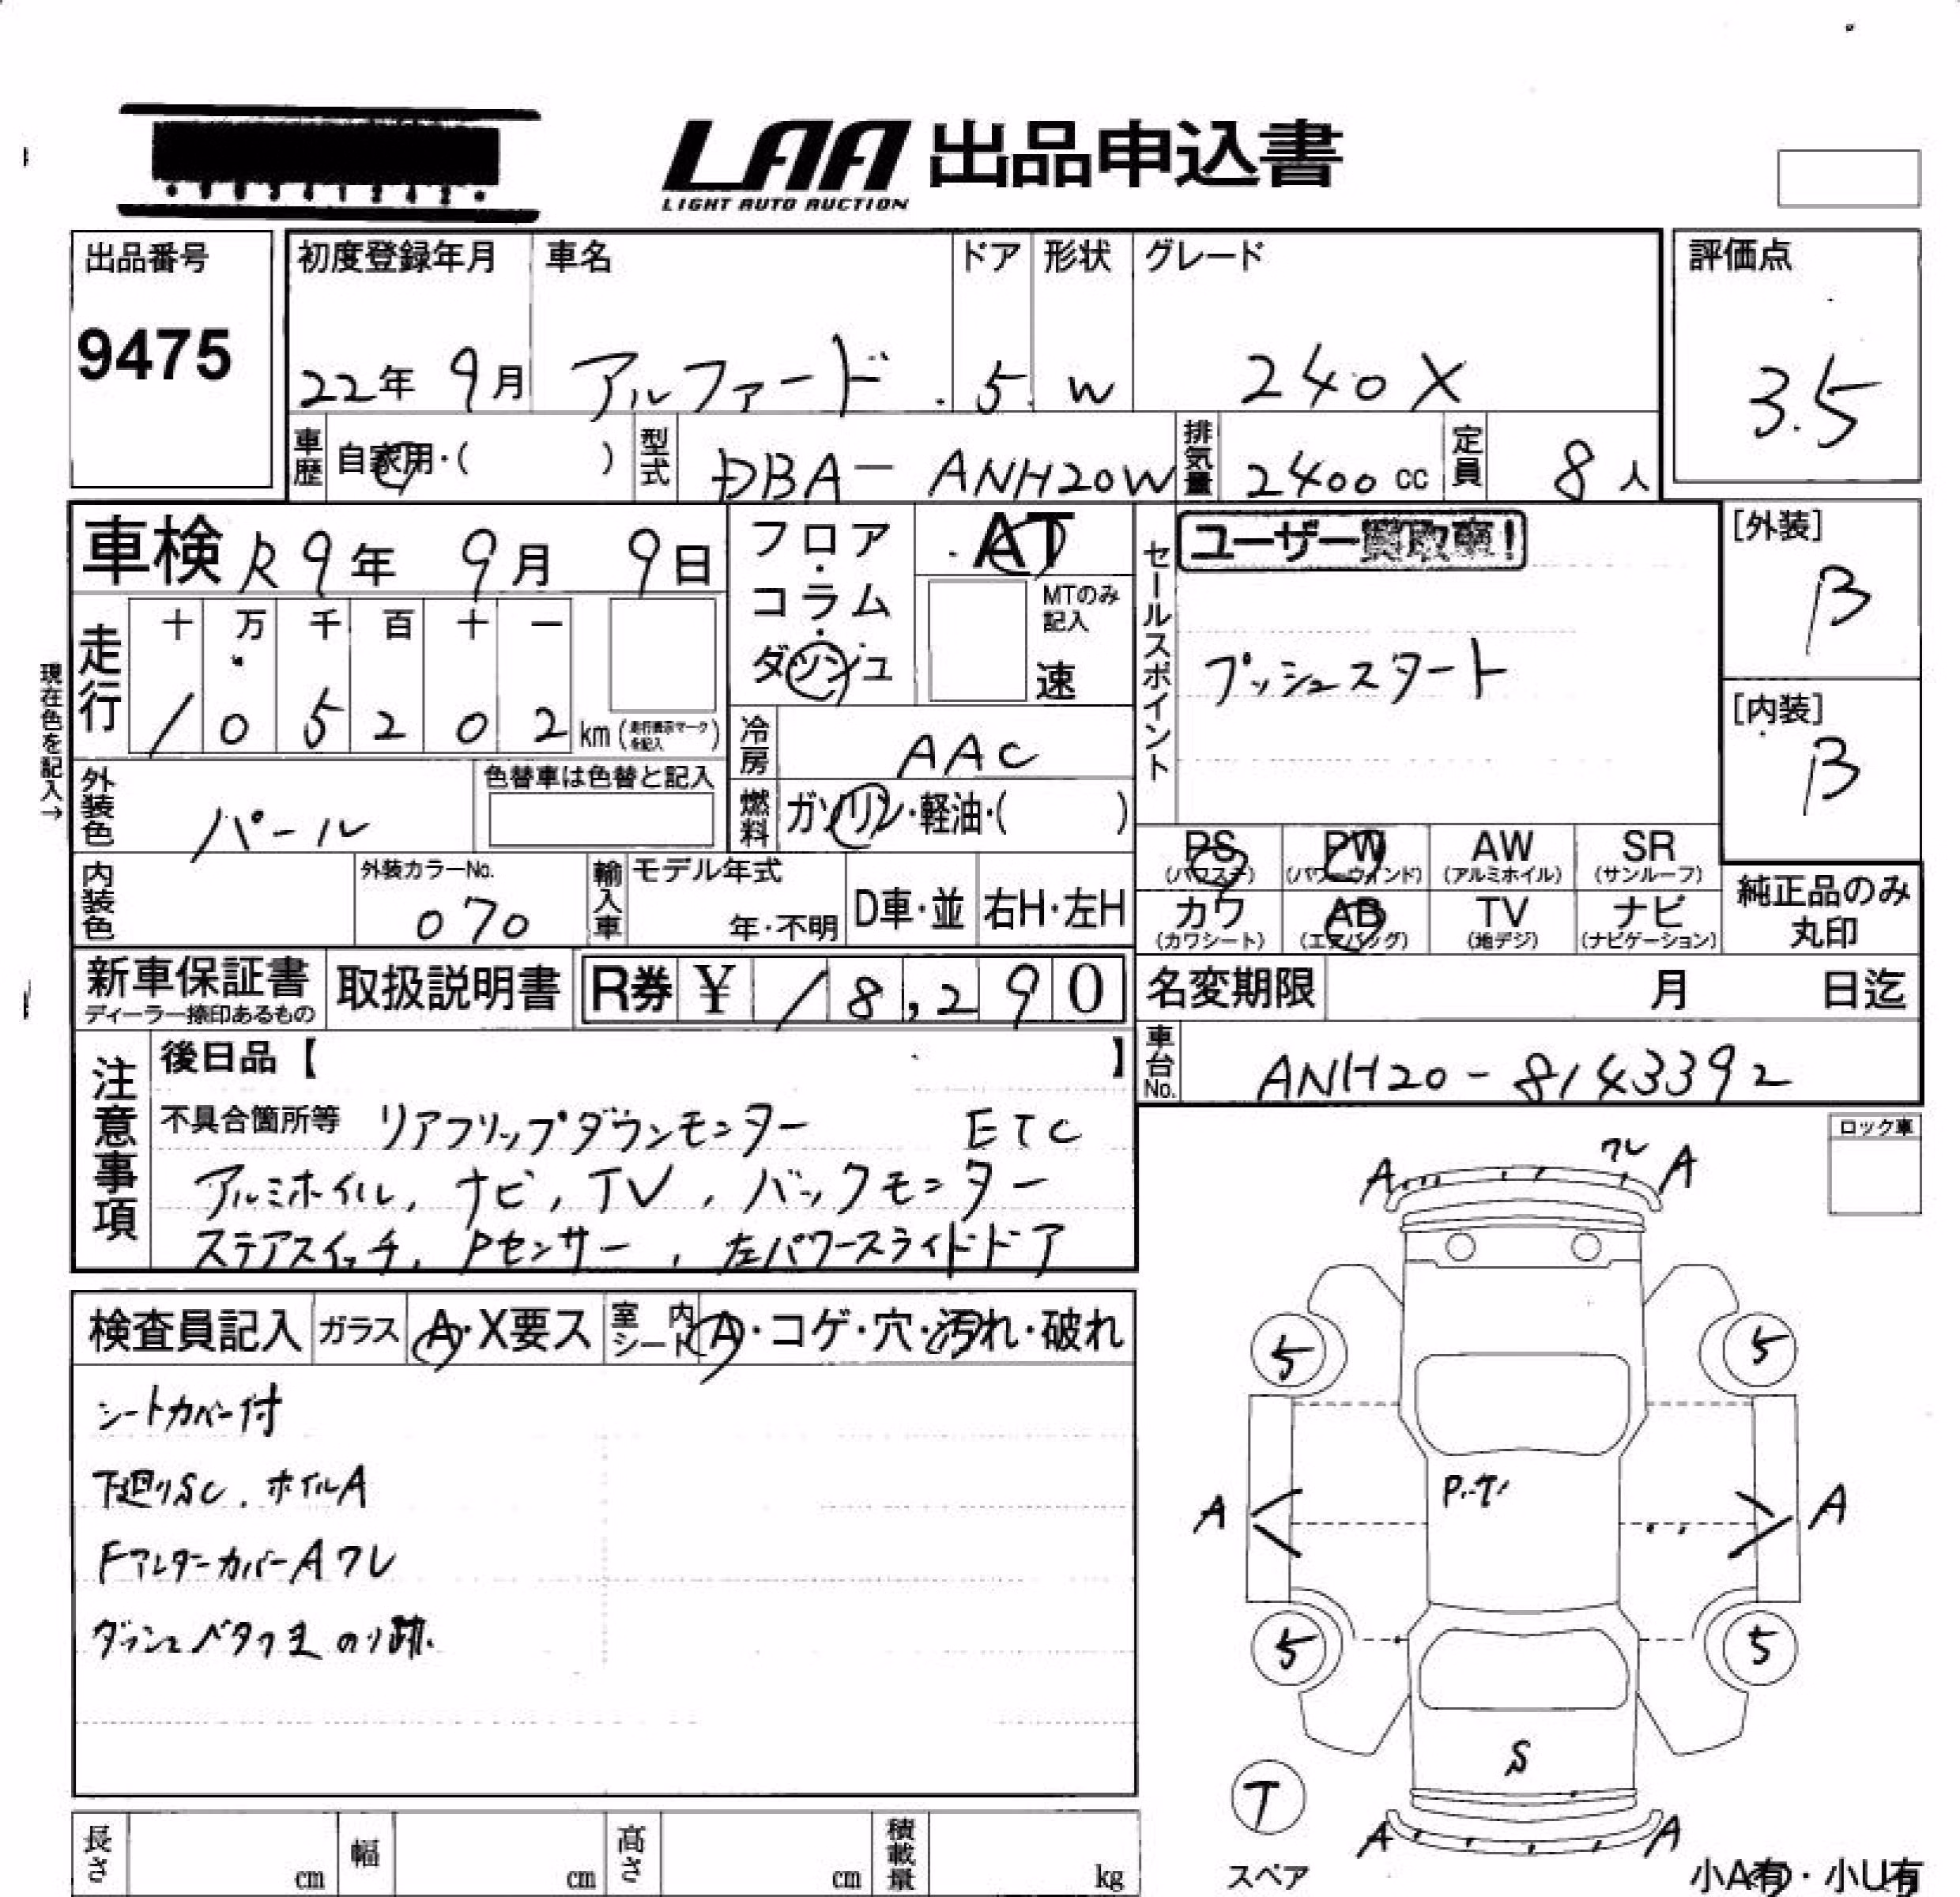 LAA 出品申込書
LIGHT AUTO AUCTION
出品番号 初度登録年月 車名 ドア 形状 グレード 評価点
9475 22年 9月 アルファード 5 W 240X 3.5
車歴 自家用・( ) 型式 DBA-ANH20W 排気量 2400cc 定員 8人
車検 R9年 9月 9日 フロア・コラム・ダッシュ AT
MTのみ記入 速
セールスポイント ユーザー買取車!
プッシュスタート
[外装] B
[内装] B
現在色を記入→
走行 十 万 千 百 十 一
1 0 5 2 0 2 km (走行表示マークを記入)
冷房 AAC
外装色 パール 色替車は色替と記入
燃料 ガソリン・軽油・( )
PS (パワステ) PW (パワーウィンド) AW (アルミホイル) SR (サンルーフ)
カワ (カワシート) AB (エアバッグ) TV (地デジ) ナビ (ナビゲーション)
純正品のみ
丸印
内装色 外装カラーNo. 070 輸入車 モデル年式 年・不明 D車・並 右H・左H
新車保証書 ディーラー捺印あるもの 取扱説明書 R券 ¥ 18,290
名変期限 月 日迄
車台No. ANH20-8143392
注意事項 後日品【 】
不具合箇所等 リアフリップダウンモニター ETC
アルミホイル, ナビ, TV, バックモニター
ステアスイッチ, Pセンサー, 左パワースライドドア
ロック車
検査員記入 ガラス A・X要ス 室内シート A・コゲ・穴・汚れ・破れ
シートカバー付
下廻りSC. ホイルA
Fアンダーカバー A ワレ
のり跡.
A ワレ A
5 5
A A
5 5
S
T
スペア
A A
小A有・小U有
長さ cm 幅 cm 高さ cm 積載量 kg